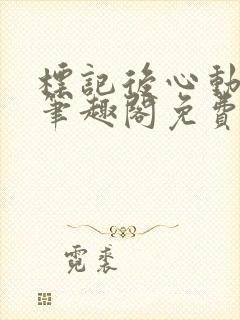 標記後心動
筆趣閣免費
霓裘